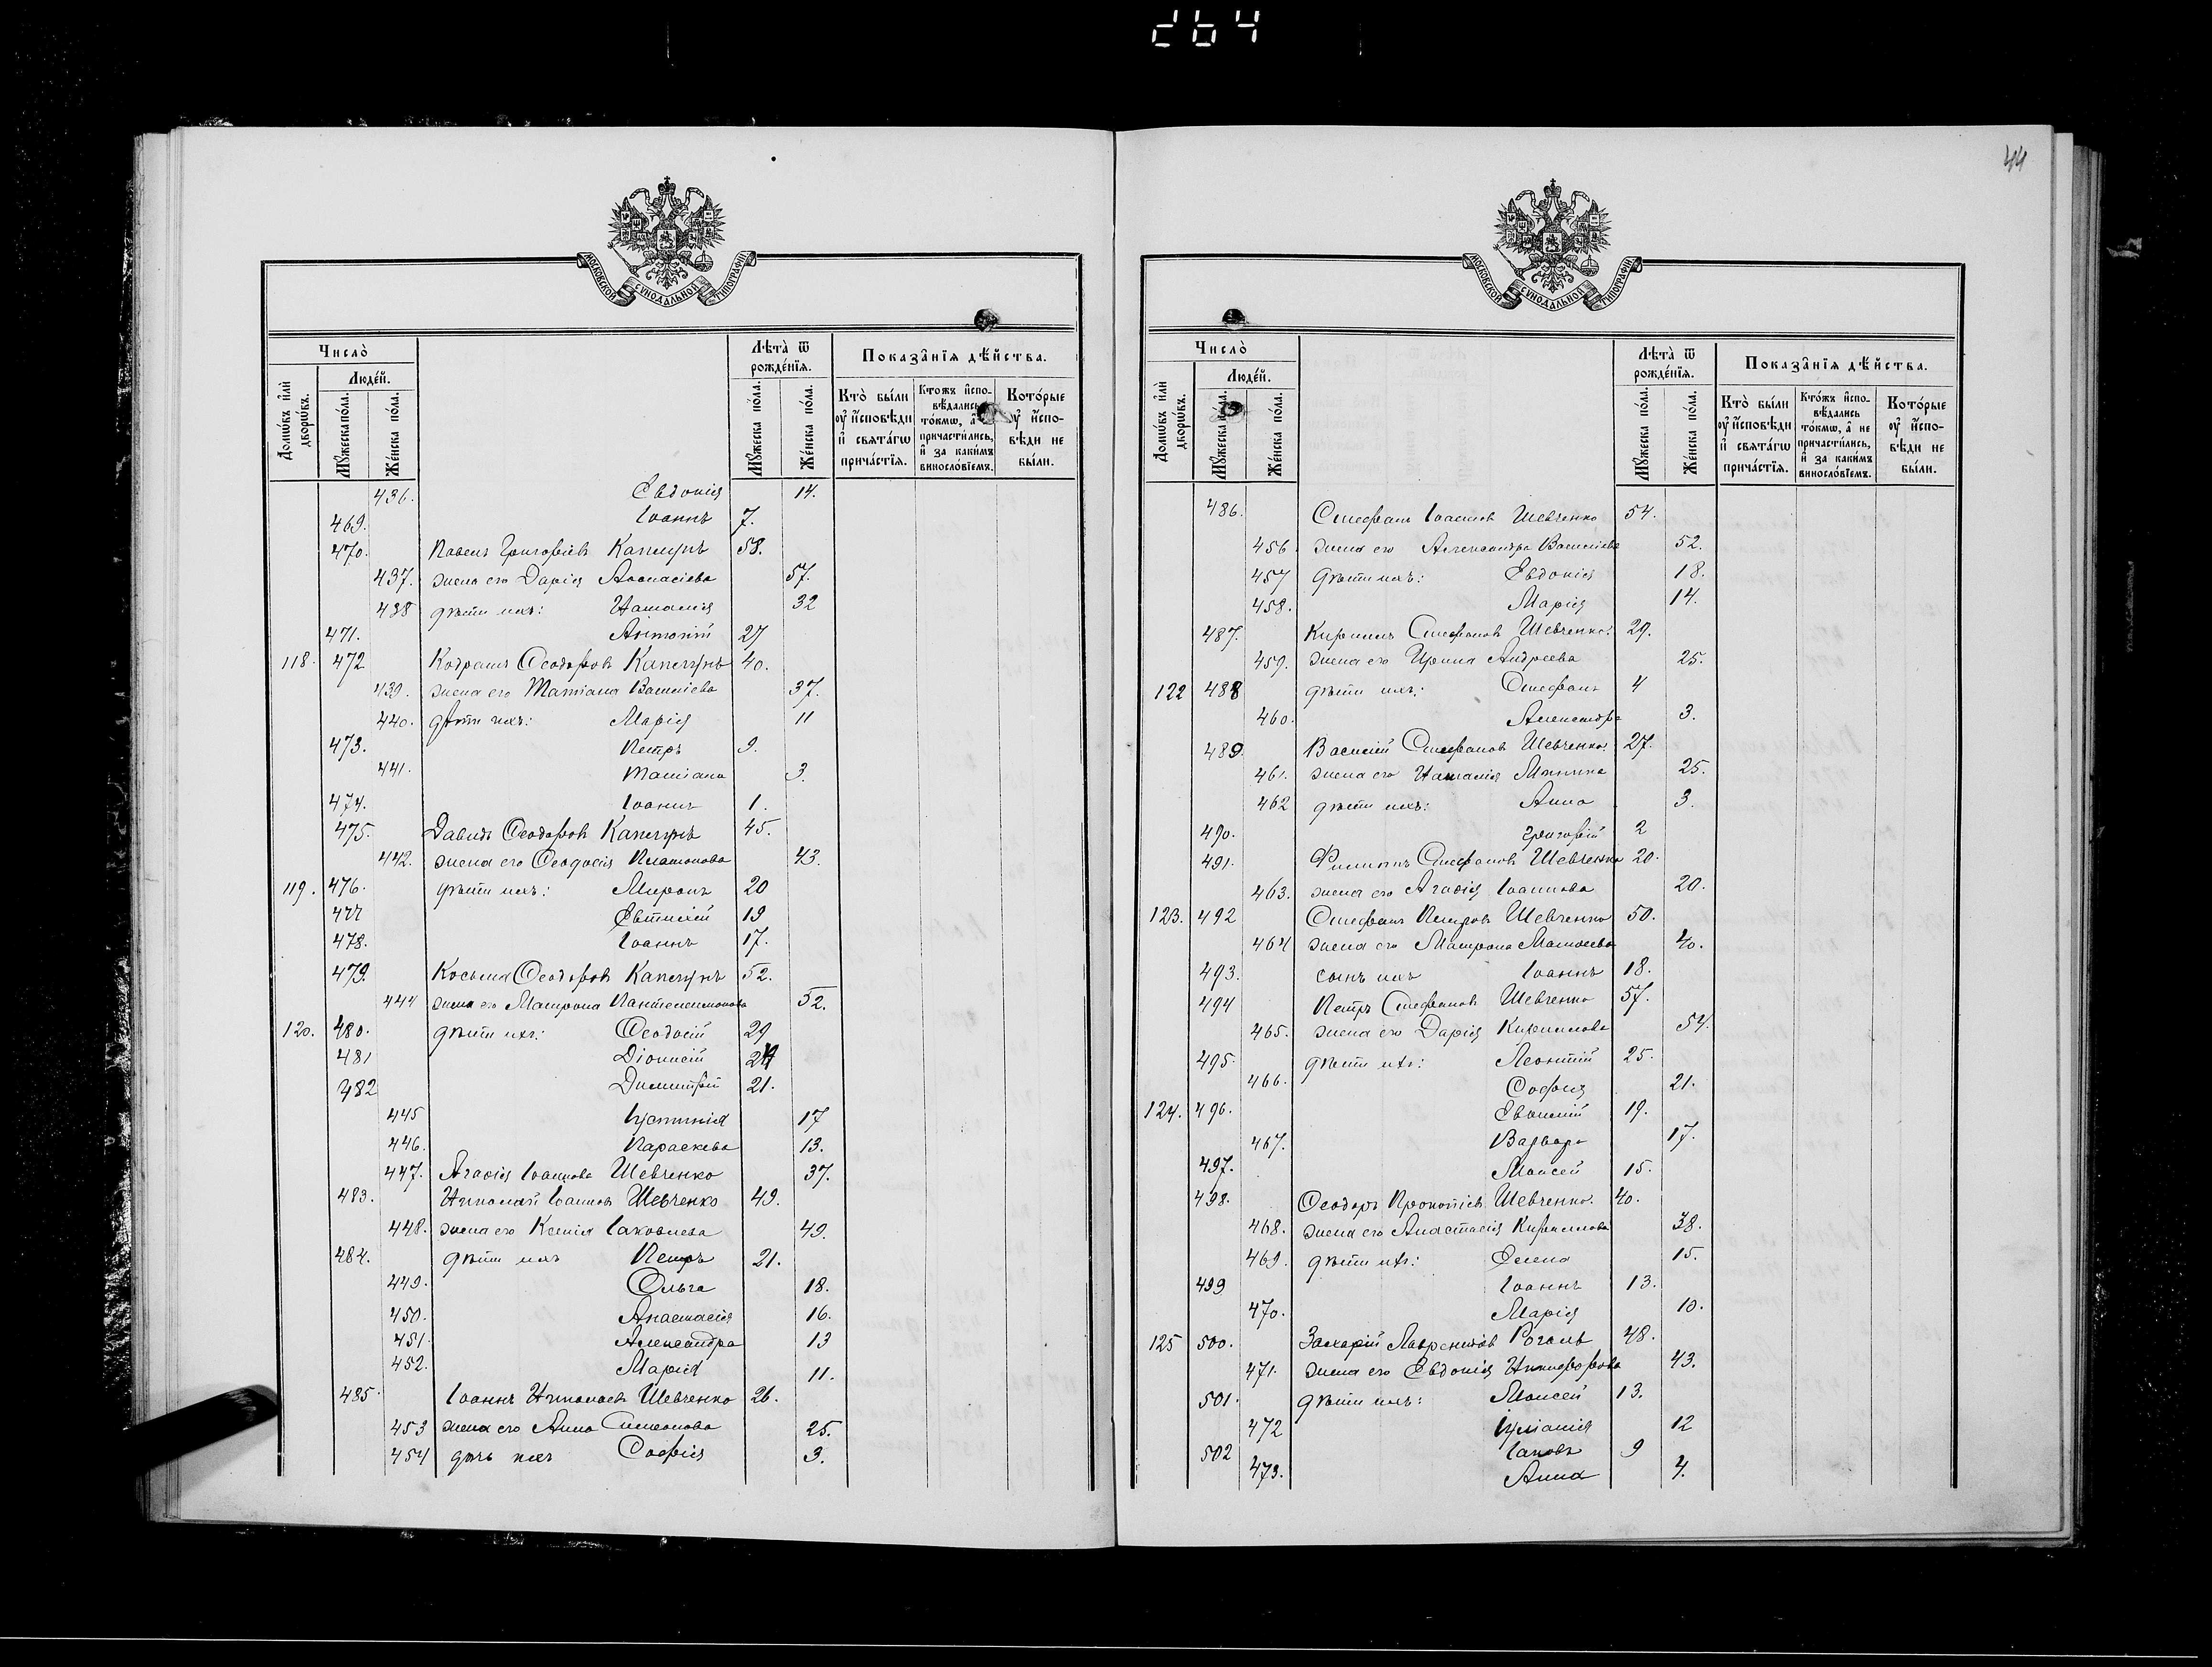 264
44
МОСКОВСКОЙ СУНОДАЛЬНОЙ ТИПОГРАФІИ
Число̀
Людей.
Домѡ́въ и҆лѝ дворѡ́въ.
Мꙋ́жеска по́ла.
Же́нска по́ла.
Лѣта̀ ѿ рожде́нїѧ.
Мꙋ́жеска по́ла.
Же́нска по́ла.
Показа̑нїѧ дѣ́йства.
Кто̀ бы́ли ᲂу҆ и҆́сповѣди и҆ свѧта́гѡ прича́стїѧ.
Кто́жъ и҆спо-вѣ́дались то́кмѡ, а҆ причасти́лись, и҆ за каки́мъ виносло́вїемъ.
Кото́рые ᲂу҆ и҆́спо-вѣди не бы́ли.
436. Евдокія 14.
469. Іоаннъ 7.
470. Павелъ Григоріевъ Капшукъ 58.
437. жена его Дарія Аѳанасіева 57.
438 дѣти ихъ: Наталія 32
471. Антоній 27
118. 472 Кодратъ Ѳеодоровъ 40.
439. жена его Татіана Василіева 37.
440. дѣти ихъ: Марія 11
473. Петръ 9.
441. Татіана 3.
474. Іоаннъ 1.
475. Давидъ Ѳеодоровъ 45.
442. жена его Ѳеодосія Платонова 43.
119. 476. дѣти ихъ: Миронъ 20
477 Евтихій 19
478. Іоаннъ 17.
479. Косьма Ѳеодоровъ 52.
444 жена его Матрона Пантелеимонова 52.
120. 480. дѣти ихъ: Ѳеодосій 29
481 Діонисій 24
482 Димитрій 21.
445 Іустинія 17
446. Параскева 13.
447. Агафія Іоаннова Шевченко 37.
483. Николай Іоанновъ Шевченко 49.
448. жена его Ксенія Іаковлева 49.
484. дѣти ихъ Петръ 21.
449. Ольга 18.
450. Анастасія 16.
451 Александра 13
452. Марія 11.
485. Іоаннъ Николаевъ Шевченко 26.
453 жена его Анна Симеонова 25.
454 дочь ихъ Софія 3.
МОСКОВСКОЙ СУНОДАЛЬНОЙ ТИПОГРАФІИ
Число̀
Людей.
Домѡ́въ и҆лѝ дворѡ́въ.
Мꙋ́жеска по́ла.
Же́нска по́ла.
Лѣта̀ ѿ рожде́нїѧ.
Мꙋ́жеска по́ла.
Же́нска по́ла.
Показа̑нїѧ дѣ́йства.
Кто̀ бы́ли ᲂу҆ и҆́сповѣди и҆ свѧта́гѡ прича́стїѧ.
Кто́жъ и҆спо-вѣ́дались то́кмѡ, а҆ не причасти́лись, и҆ за каки́мъ виносло́вїемъ.
Кото́рые ᲂу҆ и҆́спо-вѣди не бы́ли.
486. Стефанъ Іоанновъ Шевченко 54.
456. жена его Александра Василіева 52.
457 дѣти ихъ: Евдокія 18.
458. Марія 14.
487. Кириллъ Стефановъ Шевченко. 29.
459. жена его Ирина Андреева 25.
122 488 дѣти ихъ: Стефанъ 4
460. Александра 3.
489. Василій Стефановъ Шевченко. 27.
461. жена его Наталія 25.
462 дѣти ихъ: Анна 3.
490. Григорій 2
491. Филиппъ Стефановъ Шевченко 20.
463. жена его Агафія Іоаннова 20.
123. 492 Стефанъ Петровъ Шевченко 50.
464 жена его Матрона Матѳеева 40.
493. сынъ ихъ Іоаннъ 18.
494 Петръ Стефановъ Шевченко 57.
465. жена его Дарія Кириллова 54.
495. дѣти ихъ: Леонтій 25.
466. Софія 21.
124. 496. 19.
467. Варвара 17.
497. Моисей 15.
498. Ѳеодоръ Прокопіевъ Шевченко. 40.
468. жена его Анастасія Кириллова 38.
469. дѣти ихъ: Елена 15.
499 Іоаннъ 13.
470. Марія 10.
125 500. Захарій Лаврентіевъ Рогаль 48.
471. жена его Евдокія Никифорова 43.
501. дѣти ихъ: Моисей 13.
472 Іуліанія 12
502 Іаковъ 9
473. Анна 4.